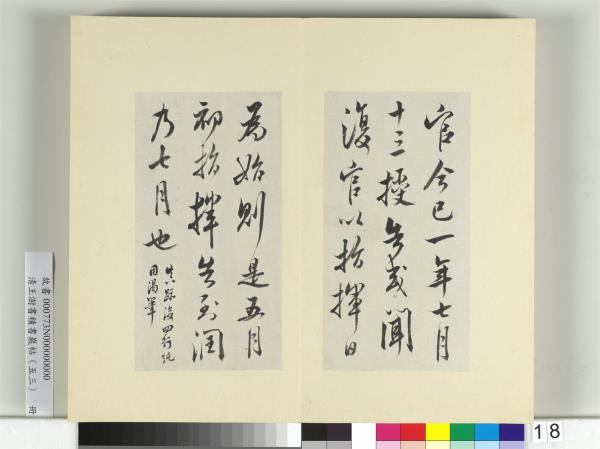 官今已一年七月
十三授告或聞
復官以指揮日
為始則是五月
初指揮告到潤
乃七月也
真跡後四行紙
因渴筆
故書 000773N000000000
清王澍書積書巖帖（五三） 冊
18